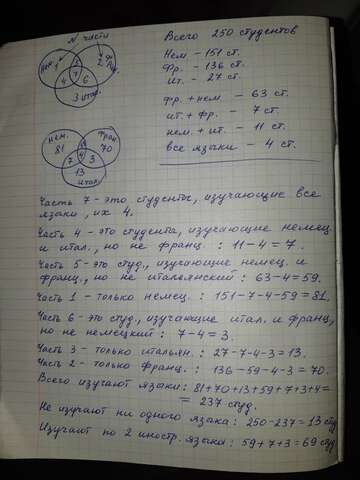 N части
Нем.
1
5
2 Фр.
4
7
6
3 итал.
Всего 250 студентов
Нем - 151 ст.
Фр. - 136 ст.
Ит. - 27 ст.
фр. + нем. - 63 ст.
ит. + фр. - 7 ст.
нем. + ит. - 11 ст.
все языки - 4 ст.
нем.
81
Фран
70
7
4
3
13
итал.
Часть 7 - это студенты, изучающие все
языки, их 4.
Часть 4 - это студента, изучающие немец
и итал., но не франц : 11-4=7.
Часть 5 - это студ., изучающие немец. и
франц., но не итальянский : 63-4=59.
Часть 1 - только немец. : 151-7-4-59=81.
Часть 6 - это студ., изучающие итал. и франц,
но не немецкий : 7-4=3.
Часть 3 - только итальян. : 27-7-4-3=13.
Часть 2 - только франц. : 136-59-4-3=70.
Всего изучают языки: 81+70+13+59+7+3+4=
= 237 студ.
Не изучают ни одного языка: 250-237=13 студ
Изучают по 2 иностр. языка: 59+7+3=69 студ